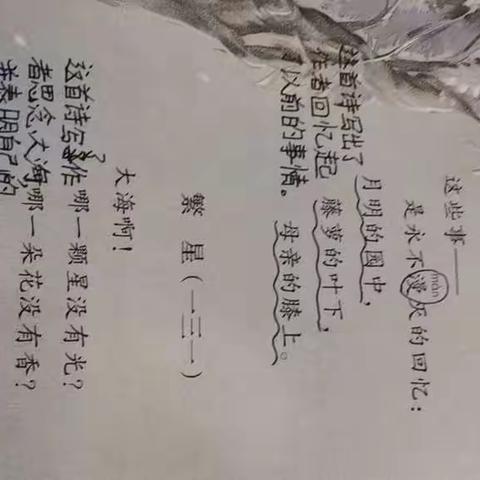 这些事——
màn
是永不漫灭的回忆：
月明的园中，
藤萝的叶下，
母亲的膝上。
这首诗写出了
作者回忆起
了以前的事情。
繁星（一三一）
大海啊！
哪一颗星没有光？
哪一朵花没有香？
这首诗写了作
者思念大海，
并表明自己的